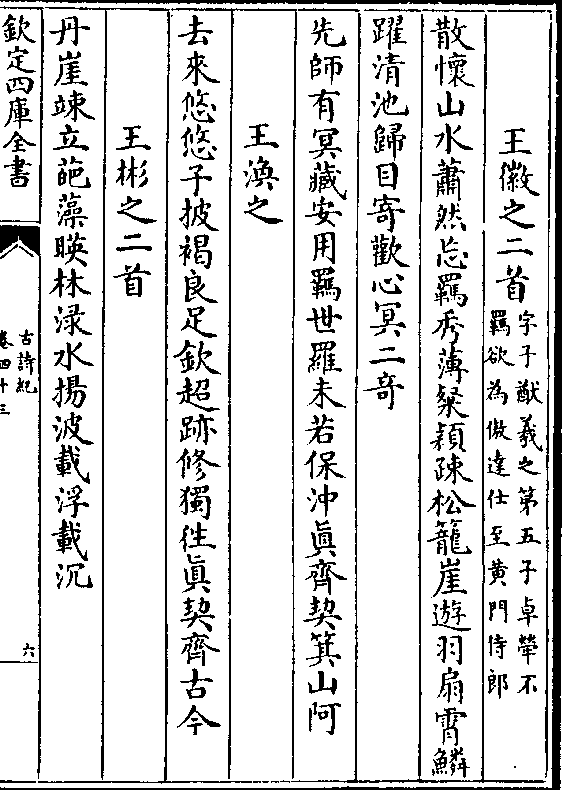 王徽之二首
字子猷羲之第五子卓犖不
羈欲為傲達仕至黄門侍郎
散懷山水蕭然忘羈秀薄粲穎疎松籠崖遊羽扇霄鱗
躍清池歸目寄歡心冥二竒
先師有冥藏安用羈世羅未若保沖眞齊契箕山阿
王渙之
去來悠悠子披褐良足欽超跡修獨往眞契齊古今
王彬之二首
丹崖竦立葩藻暎林渌水揚波載浮載沉
欽定四庫全書
古詩紀
卷四十三
六